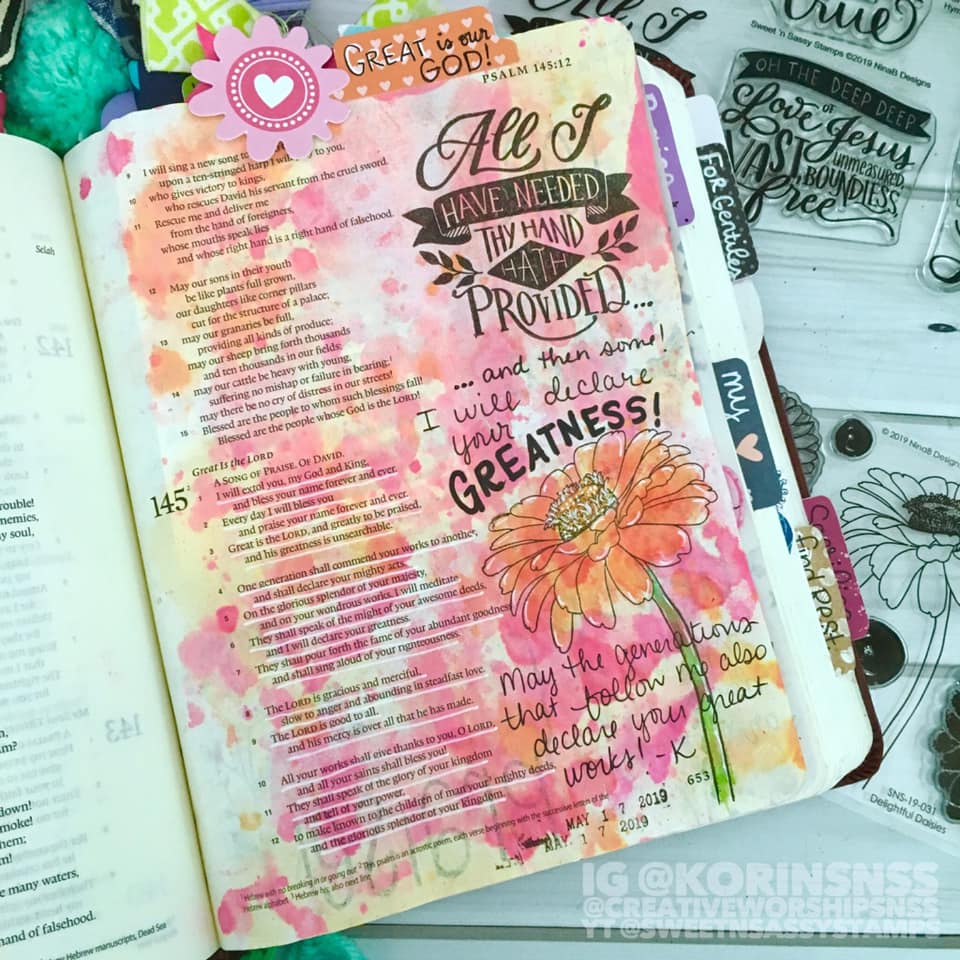 GREAT is our
GOD!
PSALM 145:12
9 I will sing a new song to
upon a ten-stringed harp I will to you,
10 who gives victory to kings,
who rescues David his servant from the cruel sword.
11 Rescue me and deliver me
from the hand of foreigners,
whose mouths speak lies
and whose right hand is a right hand of falsehood.
12 May our sons in their youth
be like plants full grown,
our daughters like corner pillars
cut for the structure of a palace;
13 may our granaries be full,
providing all kinds of produce;
may our sheep bring forth thousands
and ten thousands in our fields;
14 may our cattle be heavy with young,
suffering no mishap or failure in bearing;1
may there be no cry of distress in our streets!
15 Blessed are the people to whom such blessings fall!
Blessed are the people whose God is the LORD!
Great Is the LORD
145 2 A SONG OF PRAISE. OF DAVID.
1 I will extol you, my God and King,
and bless your name forever and ever.
2 Every day I will bless you
and praise your name forever and ever.
3 Great is the LORD, and greatly to be praised,
and his greatness is unsearchable.
4 One generation shall commend your works to another,
and shall declare your mighty acts.
5 On the glorious splendor of your majesty,
and on your wondrous works, I will meditate.
6 They shall speak of the might of your awesome deeds,
and I will declare your greatness.
7 They shall pour forth the fame of your abundant goodness
and shall sing aloud of your righteousness.
8 The LORD is gracious and merciful,
slow to anger and abounding in steadfast love.
9 The LORD is good to all,
and his mercy is over all that he has made.
10 All your works shall give thanks to you, O LORD,
and all your saints shall bless you!
11 They shall speak of the glory of your kingdom
and tell of your power,
12 to make known to the children of man your mighty deeds,
and the glorious splendor of your kingdom.
1 Hebrew with no breaking in or going out 2 This psalm is an acrostic poem, each verse beginning with the successive letters of the
Hebrew alphabet 3 Hebrew his; also next line
All I
HAVE NEEDED
THY HAND
HATH
PROVIDED...
... and then some!
I will declare
your
GREATNESS!
May the generations
that follow me also
declare your great
works! -K
653
MAY 1 7 2019
MAY. 1 7 2019
Selah
142
143
rouble!
nemies,
y soul,
am?
down!
moke!
them;
m!
e many waters,
hand of falsehood.
Hebrew manuscripts, Dead Sea
For Gentiles
my
All I
true
Sweet 'n Sassy Stamps ©2019 NinaB Designs
OH THE DEEP DEEP
Love OF Jesus
VAST, unmeasured,
BOUNDLESS,
free
© 2019 NinaB Designs
SNS-19-031
Delightful Daisies
IG @KORINSNSS
@CREATIVEWORSHIPSNSS
YT @SWEETNSASSYSTAMPS